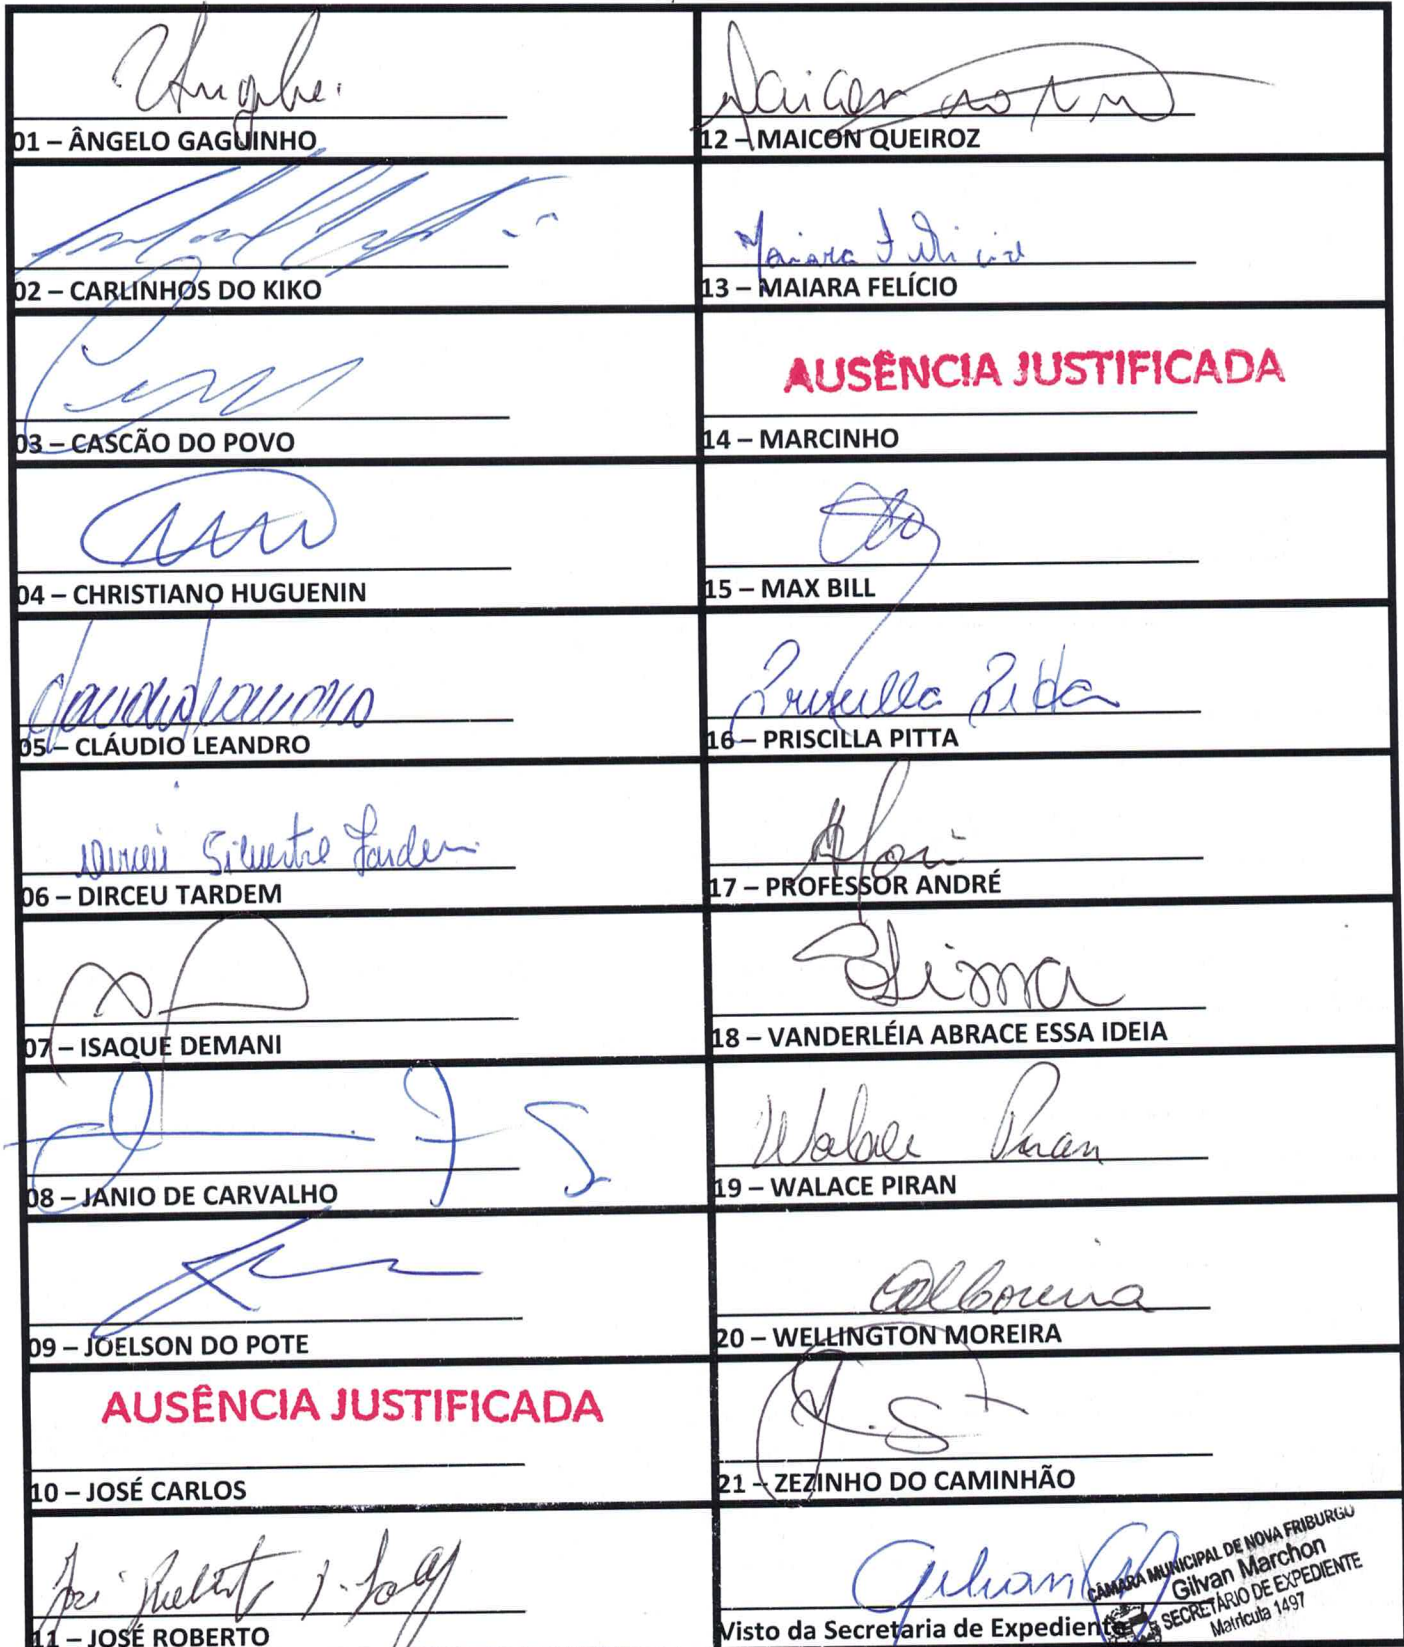 01 – ÂNGELO GAGUINHO
02 – CARLINHOS DO KIKO
03 – CASCÃO DO POVO
04 – CHRISTIANO HUGUENIN
05 – CLÁUDIO LEANDRO
Dirceu Silvestre Tardem
06 – DIRCEU TARDEM
07 – ISAQUE DEMANI
08 – JANIO DE CARVALHO
09 – JOELSON DO POTE
AUSÊNCIA JUSTIFICADA
10 – JOSÉ CARLOS
José Roberto
11 – JOSÉ ROBERTO
Maicon
12 – MAICON QUEIROZ
Maiara Felicio
13 – MAIARA FELÍCIO
AUSÊNCIA JUSTIFICADA
14 – MARCINHO
15 – MAX BILL
Priscilla Pitta
16 – PRISCILLA PITTA
17 – PROFESSOR ANDRÉ
Lima
18 – VANDERLÉIA ABRACE ESSA IDEIA
Walace Piran
19 – WALACE PIRAN
20 – WELLINGTON MOREIRA
21 – ZEZINHO DO CAMINHÃO
Gilvan
CÂMARA MUNICIPAL DE NOVA FRIBURGO
Gilvan Marchon
SECRETÁRIO DE EXPEDIENTE
Matrícula 1497
Visto da Secretaria de Expediente